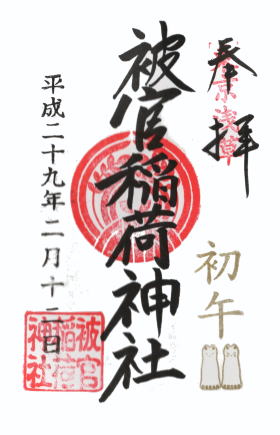 奉拝
東京浅草
初午
被官稲荷神社
平成二十九年二月十二日
被官
稲荷
神社